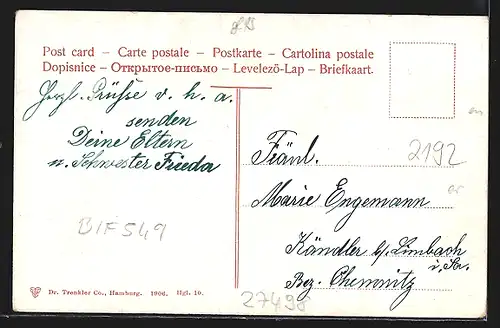 Post card – Carte postale – Postkarte – Cartolina postale
Dopisnice – Открытое-письмо – Levelező-Lap – Briefkaart.
Herzl. Grüsse v. h. a.
senden
Deine Eltern
u. Schwester Frieda
Fräul.
Marie Engemann
Kändler b/ Limbach
i. Sa.
Bez. Chemnitz
2192
B1F549
27498
Dr. Trenkler Co., Hamburg. 1906. Hgl. 10.